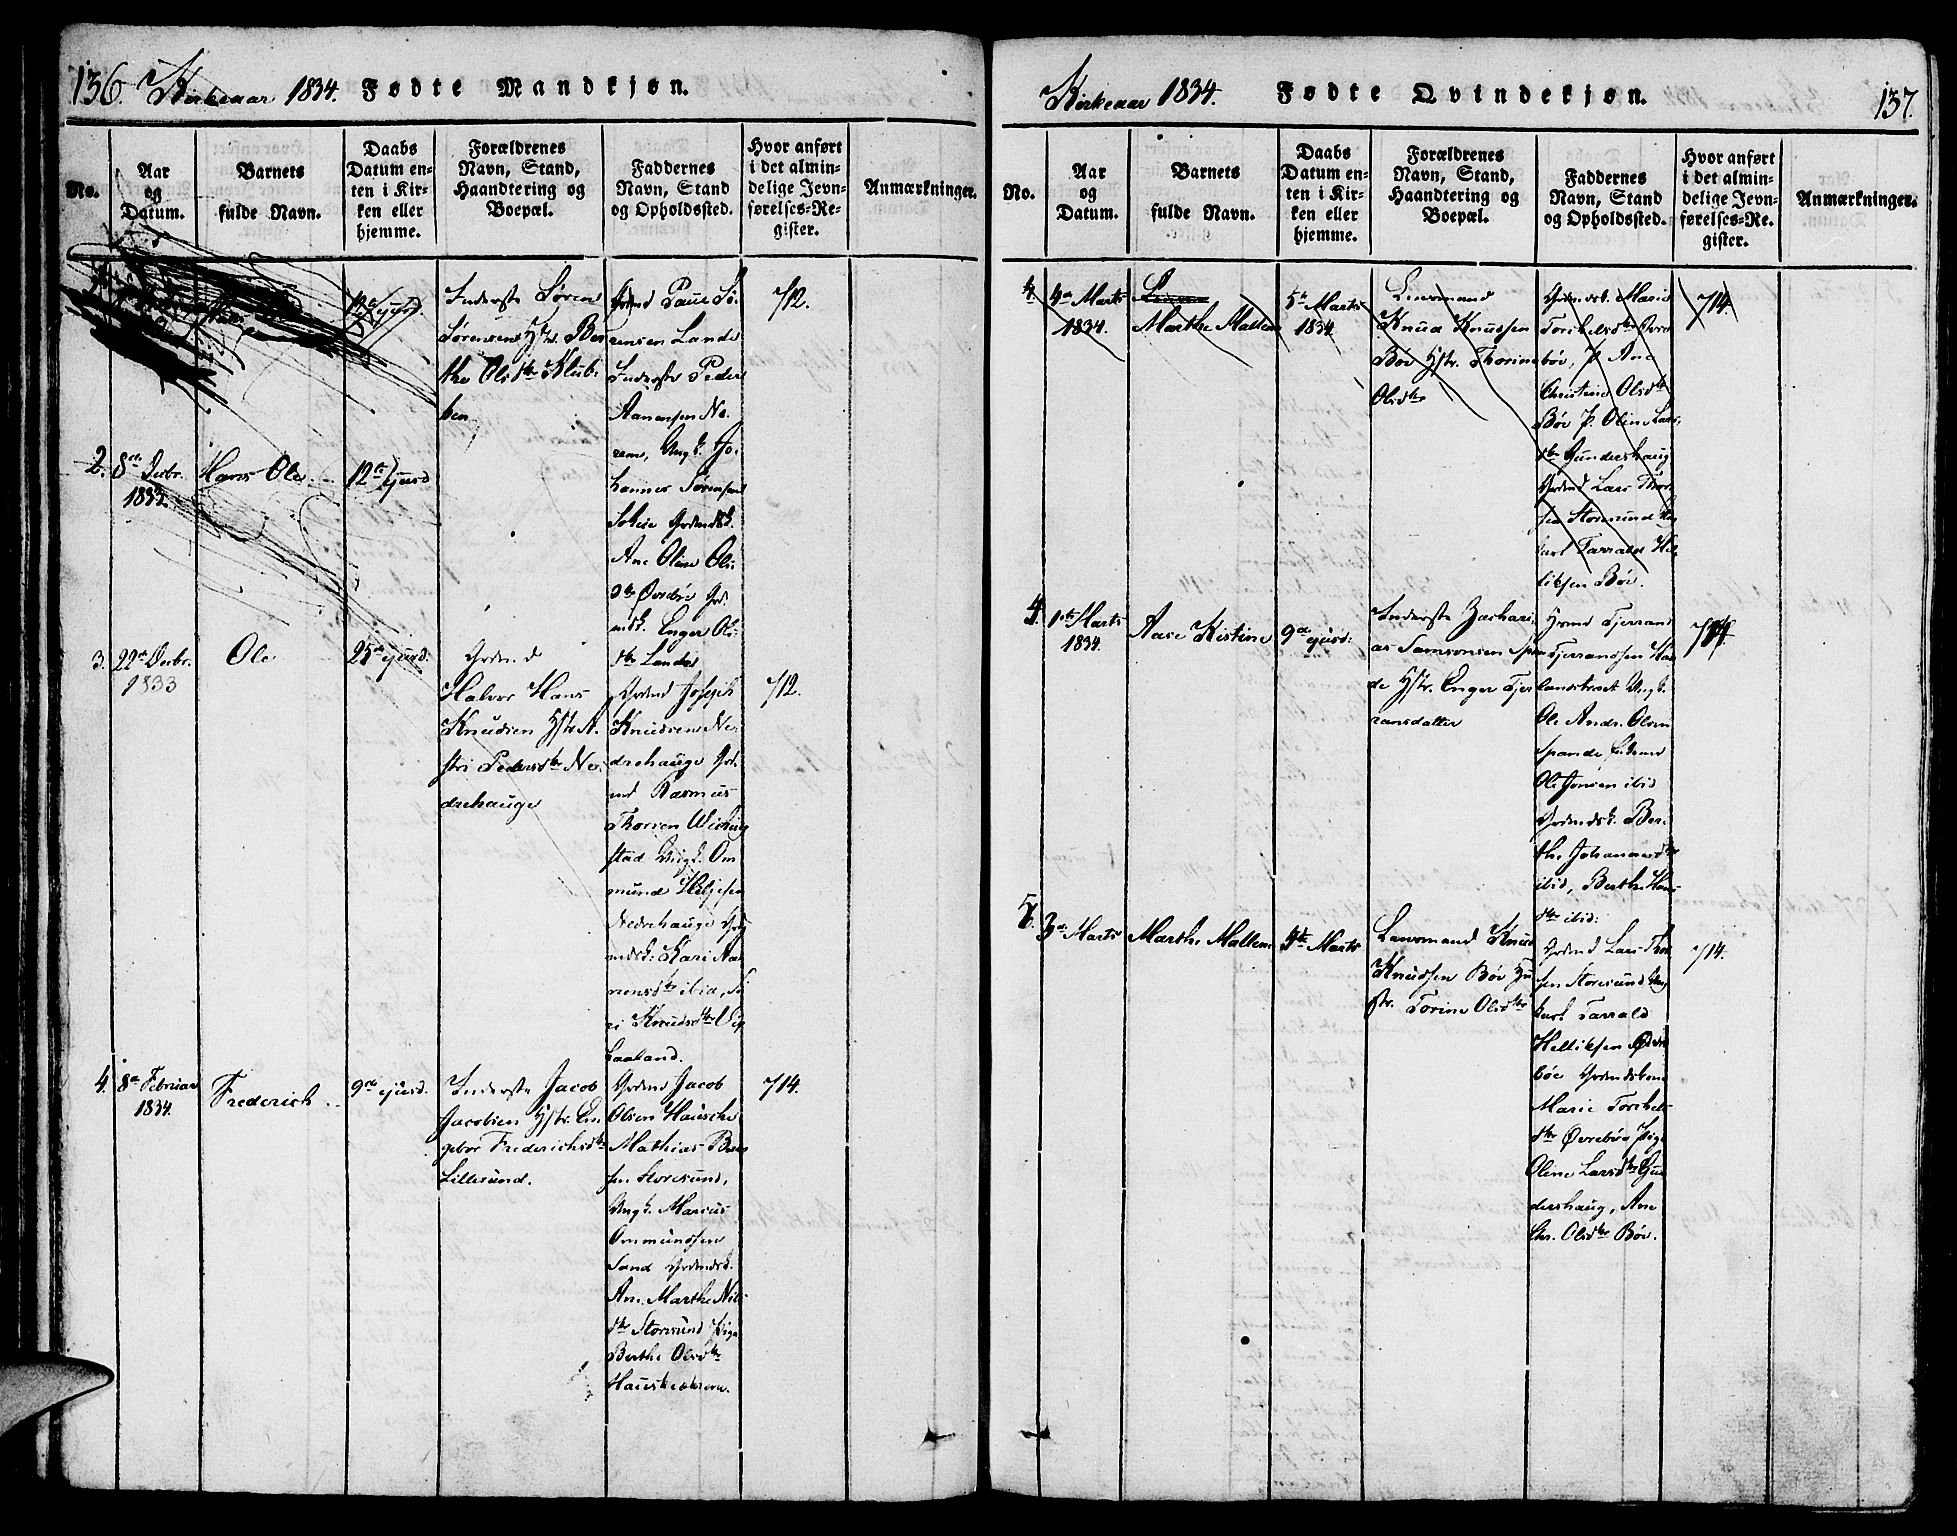 136. Kirkeaar 1834. Fødte Mandkjøn.
No.
Aar
og
Datum.
Barnets
fulde Navn.
Daabs
Datum en-
ten i Kir-
ken eller
hjemme.
Forældrenes
Navn, Stand,
Haandtering og
Boepæl.
Faddernes
Navn, Stand
og Opholdssted.
Hvor anført
i det almin-
delige Jevn-
førelses-Re-
gister.
Anmærkninger.
Inderste Søren
Sørensen Hstr. Ber
the Olsdtr Klub-
ben
Grdmd Paul Sø-
rensen Lande
Inderste Peder
Aanensen Ne-
rem, Ungk. Jo-
hannes Sørensen
Soleie Grdmdsk.
Ane Oline Ols
dtr Øvrebø Grd.
mdsk. Enger Ols-
dtr Lande
712.
2. 8de Decbr.
1833.
Hans Ole
12te ejusd
3. 22de Decbr.
1833
Ole
25de ejusd.
Grdm.d
Halvor Hans
Knudsen Hstr A-
stri Pedersdtr Ne-
drehauge
Grdmd Joseph
Knudsen Ne-
drehauge Grd.
md Rasmus
Thorsen Wiching
stad Ungk. Om
mund Helgesen
Nedrehauge Grd
mdsk: Kari Aa
nensdtr ibid, Si
ri Knudsdtr Vig
Laaland.
712.
4. 8de Februar
1834.
Frederich
9de ejusd.
Inderste Jacob
Jacobsen Hstr. In
gebor Frederichsdtr
Lillesund.
Grdmd Jacob
Olsen Hauske
Mathias Be
sen Storesund,
Ungk. Marcus
Ommundsen
Sand Grdmdsk.
Ane Marthe Nils
dtr Storesund Pige
Berthe Olsdtr
Hauske
714.
Kirkeaar 1834. Fødte Qvindekjøn. 137.
No.
Aar
og
Datum.
Barnets
fulde Navn.
Daabs
Datum en-
ten i Kir-
ken eller
hjemme.
Forældrenes
Navn, Stand,
Haandtering og
Boepæl.
Faddernes
Navn, Stand
og Opholdssted.
Hvor anført
i det almin-
delige Jevn-
førelses-Re-
gister.
Anmærkninger.
4. 4de Marts
1834.
Marthe Mallene
5te Marts
1834
Lensmand
Knud Knudsen
Bøe Hstr. Thorine
Olsdtr
Grdmdsk. Marie
Torkelsdtr Øvre
bøe, P. Ane
Christine Olsdtr
Bøe P. Oline Lars-
dtr Gundershaug
Grdmd Lars Thor
sen Storesund Ung
karl Tarrald Hel
liksen Bøe.
714.
4. 1ste Marts
1834.
Aase Kistine
9de ejusd:
Inderste Zachari-
as Samsonsen Span
de Hstr. Enger Tjer
ransdatter
Grdmd Tjerrand
Tjerrandsen Haa
landstræt Ungk.
Ole Andr. Olsen
Spande
Ole Jonsen ibid
Grdmdsk. Ber-
the Johannesdtr
ibid, Berthe Hans
dtr ibid:
714
5. 3de Marts
Marthe Mallene
5te Marts
Lensmand Knud
Knudsen Bøe Hu
str. Torine Olsdtr
Grdmd Lars Thor
sen Storesund Ung
karl Tarrald
Helliksen Øvre
bøe Grdmdskone
Marie Torkels
dtr Øvrebøe Pige
Oline Larsdtr Gun
dershaug, Ane
Chr. Olsdtr Bøe.
714.